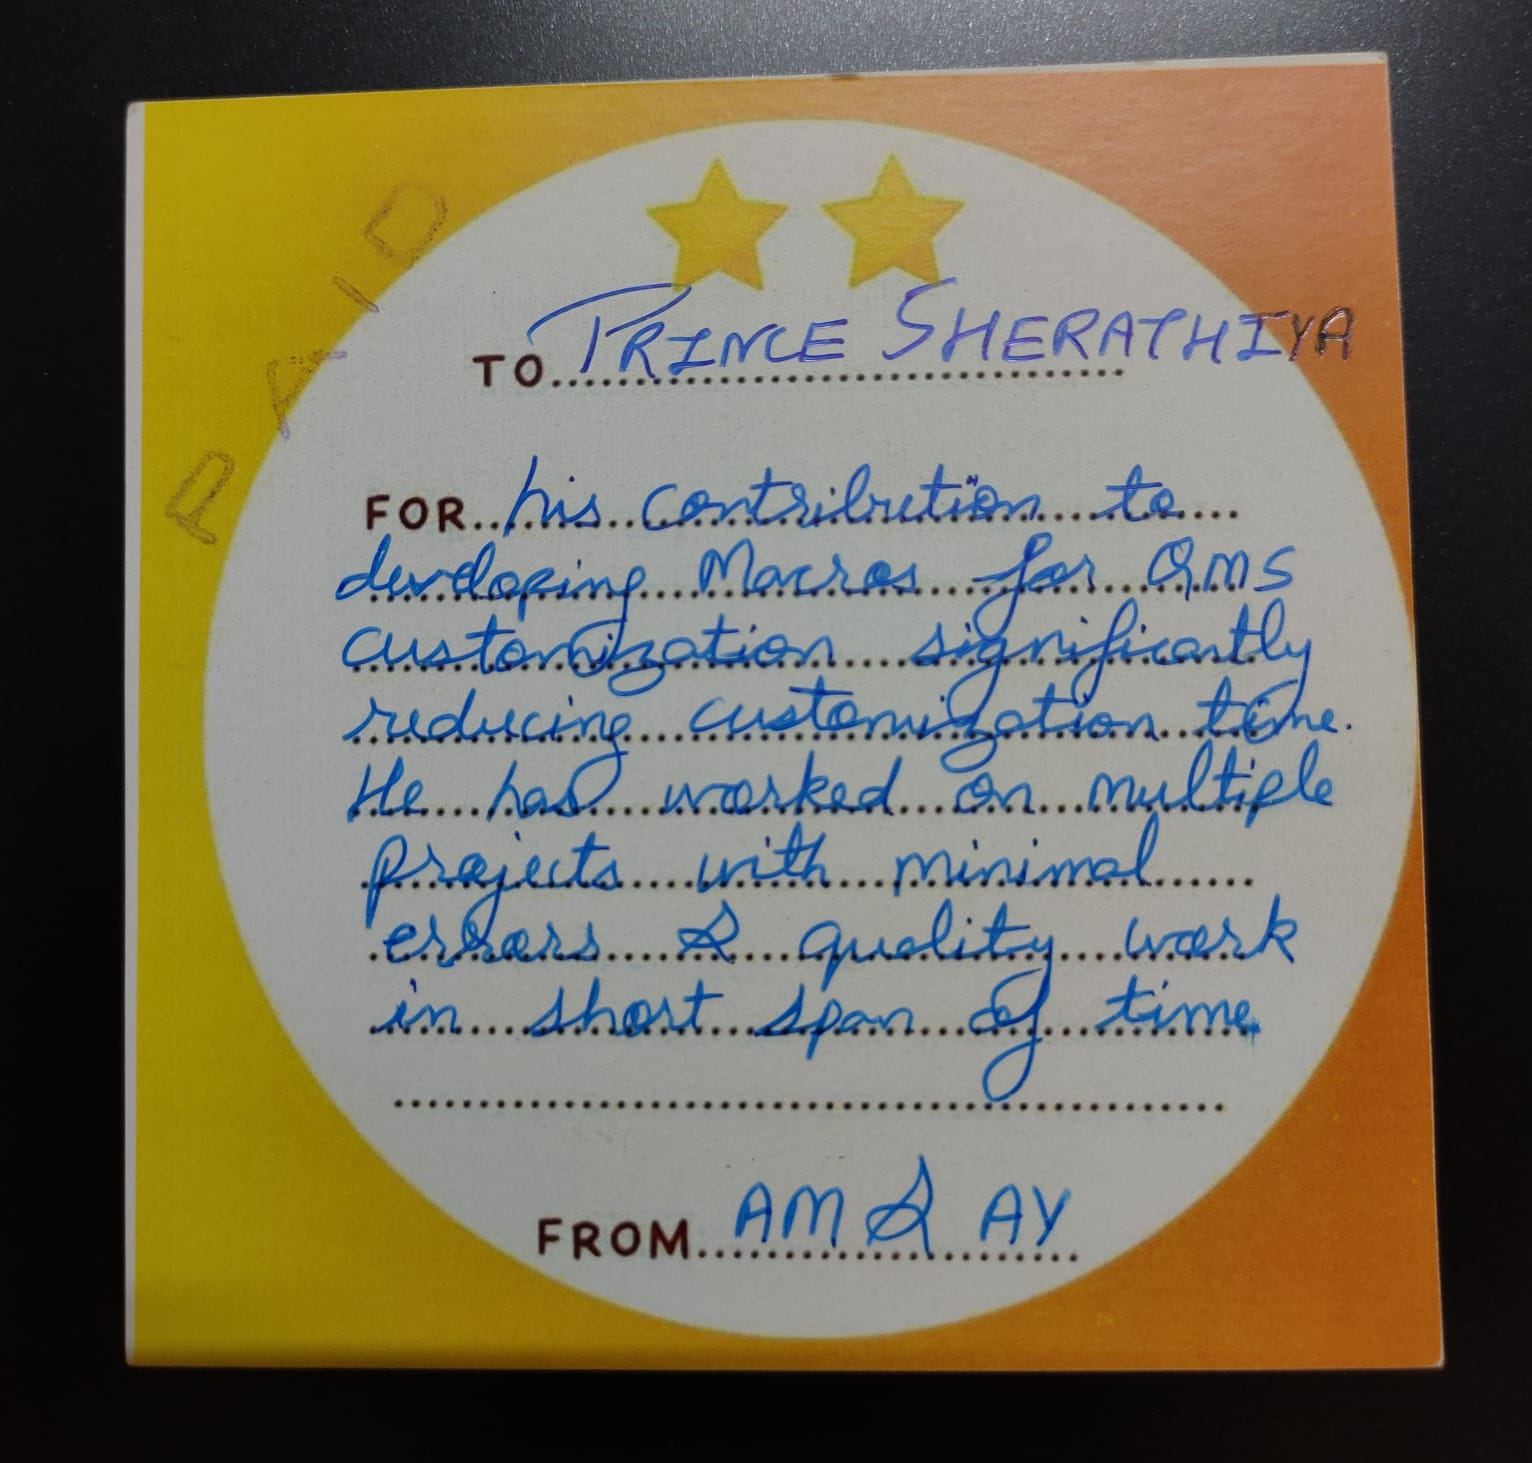 PAID
TO PRINCE SHERATHIYA
FOR his contribution to
developing Macros for QMS
customization significantly
reducing customization time.
He has worked on multiple
projects with minimal
errors & quality work
in short span of time.
FROM AM & AY